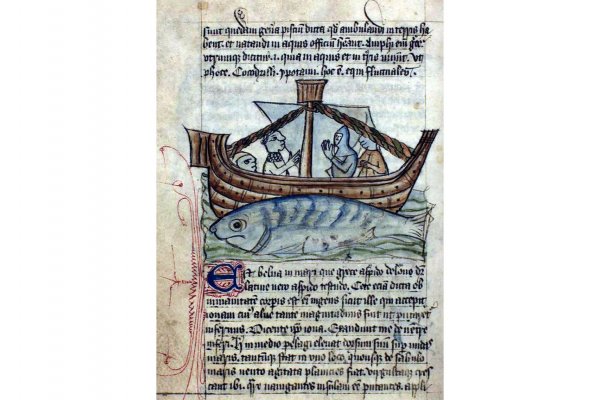 sunt quedam gen̄a pisciū dicta qd̄ ambulandi in terris ha
bent. et natandi in aquis officiū hn̄t. Amphi em̄ gre
utrumque dicitur .i. quia in aquis et in t̄ris vivunt. ut
phoce. Cocodrilli. ypotami. hoc ē. equi fluctuales.
Est belua in mari que grece aspido delone dr̄
latine vero aspido testudo. Cete eciā dicta ob
inmanitatē corpis est em̄ ingens sicut ille qui accepit
ionam cui' alvue tante magnitudinis fuit ut putaret
infernus. Dicente ip̄o iona. Exaudivit me de ventre
inferi. Hic in medio pelagi elevat dorsum suum sup undas
maris. tantumque stat in uno loco. quousque de sabulo
maris vento agitata planicies fiat. virgultaque cres
cant ibi. navigantes insulam eē putantes. appli